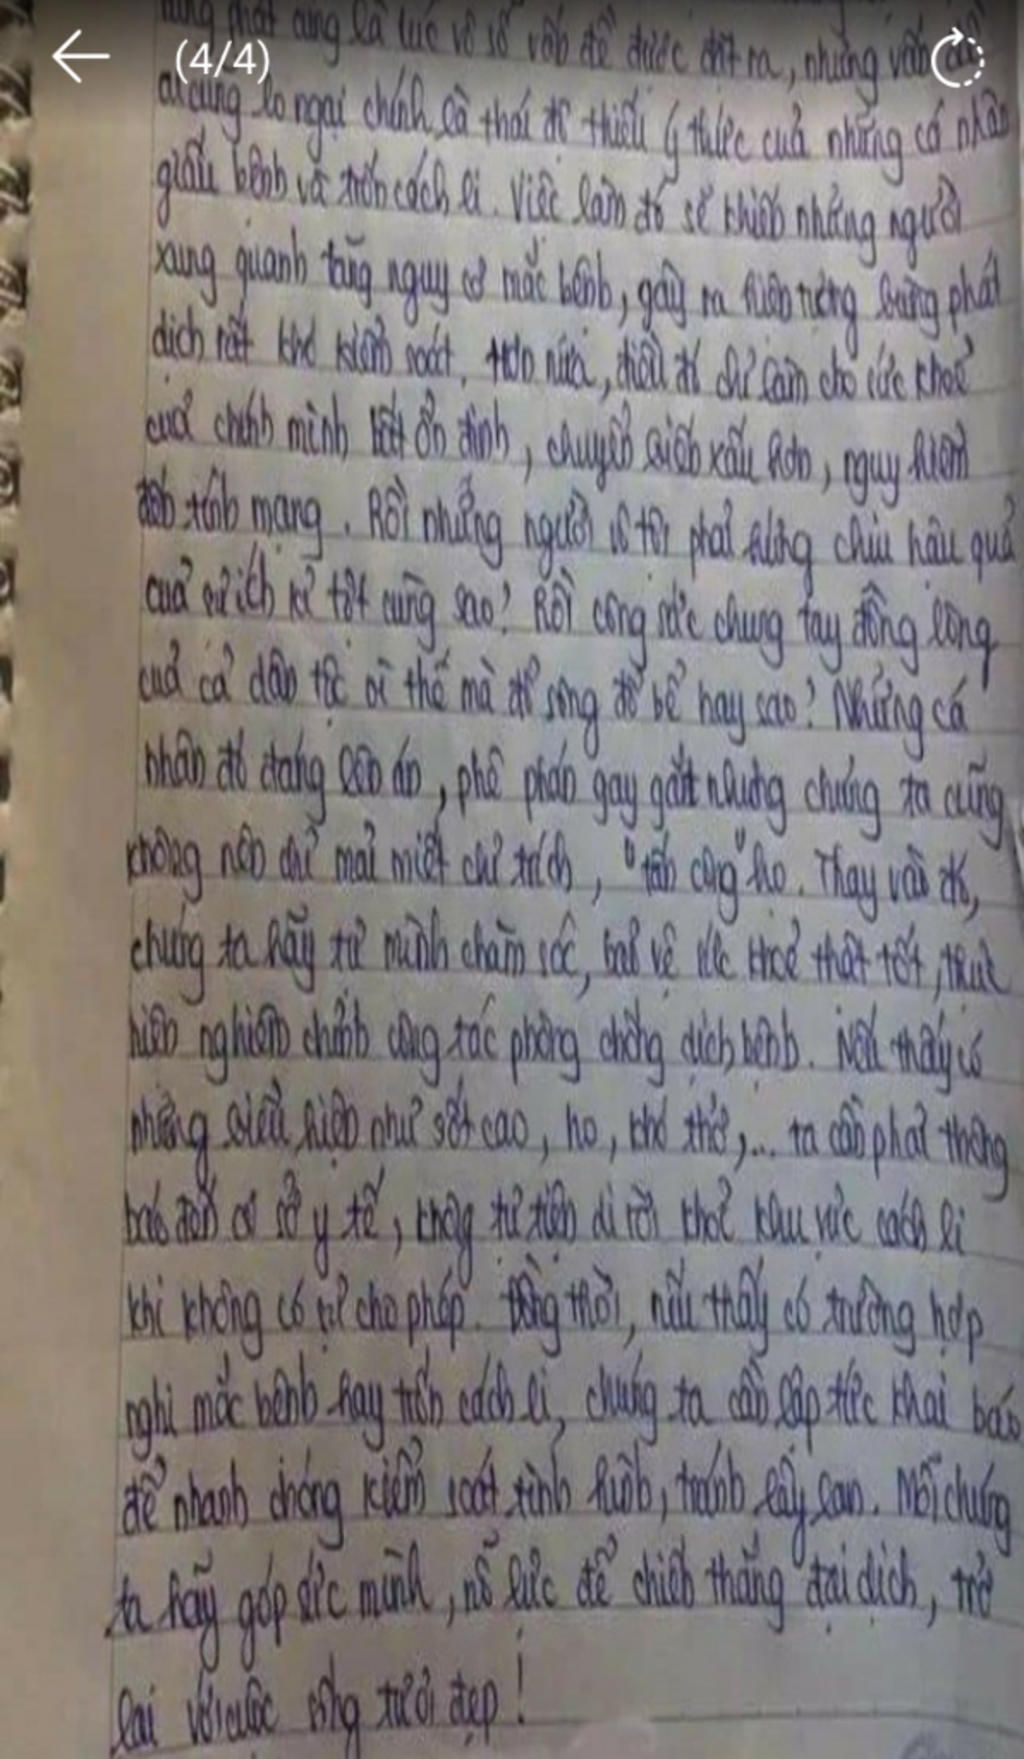 (4/4)
cũng là lúc vô số vấn đề được đặt ra, những vấn đề
ai cũng lo ngại chính là thái độ thiếu ý thức của những cá nhân
giấu bệnh và trốn cách li. Việc làm đó sẽ khiến những người
xung quanh tăng nguy cơ mắc bệnh, gây ra hiện tượng bùng phát
dịch rất khó kiểm soát. Hơn nữa, điều đó chỉ làm cho sức khoẻ
của chính mình bất ổn định, chuyển biến xấu hơn, nguy hiểm
đến tính mạng. Rồi những người vô tội phải hứng chịu hậu quả
của sự ích kỉ tột cùng sao? Rồi công sức chung tay đồng lòng
của cả dân tộc vì thế mà đổ sông đổ bể hay sao? Những cá
nhân đó đáng lên án, phê phán gay gắt nhưng chúng ta cũng
không nên chỉ mải miết chỉ trích, "tấn công" họ. Thay vào đó,
chúng ta hãy tự mình chăm sóc, bảo vệ sức khoẻ thật tốt, thực
hiện nghiêm chỉnh công tác phòng chống dịch bệnh. Nếu thấy có
những biểu hiện như sốt cao, ho, khó thở,... ta cần phải thông
báo đến cơ sở y tế, không tự tiện di rời khỏi khu vực cách li
khi không có sự cho phép. Đồng thời, nếu thấy có trường hợp
nghi mắc bệnh hay trốn cách li, chúng ta cần lập tức khai báo
để nhanh chóng kiểm soát tình hình, tránh lây lan. Mỗi chúng
ta hãy góp sức mình, nỗ lực để chiến thắng đại dịch, trở
lại với cuộc sống tươi đẹp!